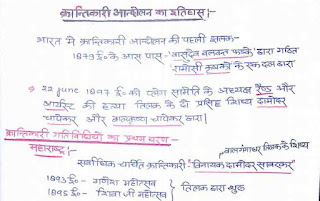 क्रान्तिकारी आन्दोलन का इतिहास:-
भारत में क्रान्तिकारी आन्दोलन की पहली झलक-
1879 ई० के आस पास- 'वासुदेव बलवन्त फाड़के' द्वारा गठित
'रामोसी कृषकों के एक दल द्वारा
22 June 1897 ई० की प्लेग समिति के अध्यक्ष रैण्ड और
आयर्स्ट की हत्या तिलक के दो प्रसिद्ध शिष्य दामोदर
चापेकर और बालकृष्ण चापेकर द्वारा।
क्रान्तिकारी गतिविधियों का प्रथम चरण
बालगंगाधर तिलक के शिष्य
महाराष्ट्र:-
सर्वाधिक चर्चित क्रान्तिकारी 'विनायक दामोदर सावरकर'
1893 ई०- गणेश महोत्सव
1895 ई०- शिवाजी महोत्सव
तिलक द्वारा शुरू